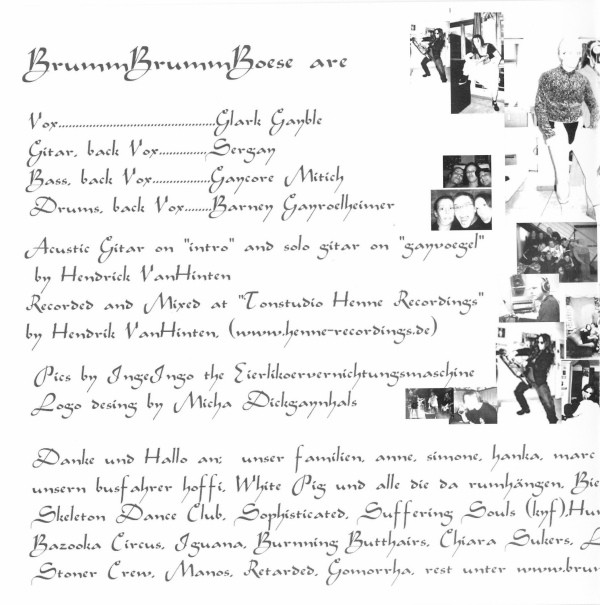 BrummBrummBoese are
Vox..............................................Glark Gayble
Gitar, back Vox..............Sergay
Bass, back Vox.................Gaycore Mitich
Drums, back Vox.......Barney Gayroelheimer
Acustic Gitar on "intro" and solo gitar on "gayvoegel"
by Hendrick VanHinten
Recorded and Mixed at "Tonstudio Henne Recordings"
by Hendrik VanHinten, (www.henne-recordings.de)
Pics by IngeIngo the Eierlikoervernichtungsmaschine
Logo desing by Micha Dickgaynhals
Danke und Hallo an: unser familien, anne, simone, hanka, marc
unsern busfahrer hoffi, White Pig und alle die da rumhängen, Bie
Skeleton Dance Club, Sophisticated, Suffering Souls (kyf),Hu
Bazooka Circus, Iguana, Burnning Butthairs, Chiara Sukers, L
Stoner Crew, Manos, Retarded, Gomorrha, rest unter www.brum